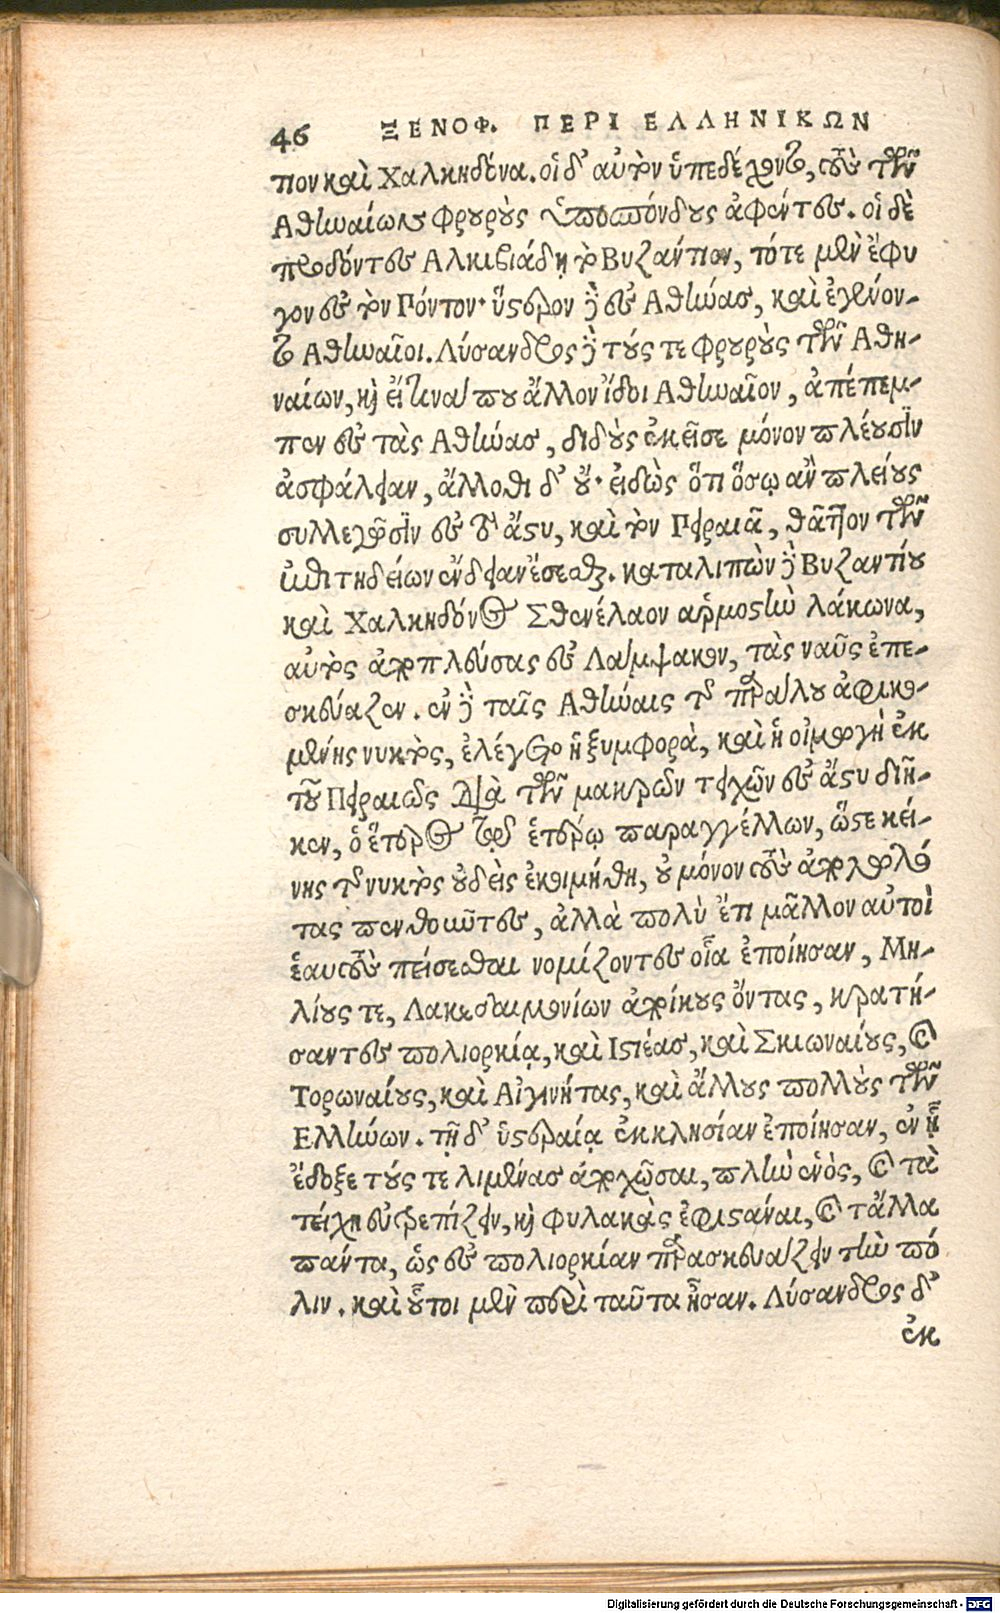 46 ΞΕΝΟΦ. ΠΕΡΙ ΕΛΛΗΝΙΚΩΝ
πον καὶ Χαλκηδόνα. οἱ δ' αὐτὸν ὑπεδέχοντο, τοὺς τῶν
Αθηναίων φρουροὺς ὑποσπόνδους ἀφέντες. οἱ δὲ
προδόντες Αλκιβιάδῃ τὸ Βυζάντιον, τότε μὲν ἔφυ
γον εἰς τὸν Πόντον· ὕστερον δὲ εἰς Αθήνας, καὶ ἐγένον-
το Αθηναῖοι. Λύσανδρος δὲ τούς τε φρουροὺς τῶν Αθη-
ναίων, καὶ εἴ τινα που ἄλλον ἴδοι Αθηναῖον, ἀπέπεμ-
πεν εἰς τὰς Αθήνας, διδοὺς ἐκεῖσε μόνον πλέουσιν
ἀσφάλειαν, ἄλλοθι δ' οὔ· εἰδὼς ὅτι ὅσῳ ἂν πλείους
συλλεγῶσιν εἰς τὸ ἄστυ, καὶ τὸν Πειραιᾶ, θᾶττον τῶν
ἐπιτηδείων ἔνδειαν ἔσεσθαι. καταλιπὼν δὲ Βυζαντίου
καὶ Χαλκηδόνος Σθενέλαον ἁρμοστὴν λάκωνα,
αὐτὸς ἀποπλεύσας εἰς Λάμψακον, τὰς ναῦς ἐπε-
σκεύαζεν. ἐν δὲ ταῖς Αθήναις τῆς παράλου ἀφικο-
μένης νυκτὸς, ἐλέγετο ἡ ξυμφορὰ, καὶ ἡ οἰμωγὴ ἐκ
τοῦ Πειραιῶς διὰ τῶν μακρῶν τειχῶν εἰς ἄστυ διῆ-
κεν, ὁ ἕτερος τῷ ἑτέρῳ παραγγέλλων, ὥστε κεί-
νης τῆς νυκτὸς οὐδεὶς ἐκοιμήθη, οὐ μόνον τοὺς ἀπολωλό
τας πενθοῦντες, ἀλλὰ πολὺ ἔτι μᾶλλον αὐτοὶ
ἑαυτοὺς πείσεσθαι νομίζοντες οἷα ἐποίησαν, Μη-
λίους τε, Λακεδαιμονίων ἀποίκους ὄντας, κρατή-
σαντες πολιορκίᾳ, καὶ Ιστιέας, καὶ Σκιωναίους, καὶ
Τορωναίους, καὶ Αἰγινήτας, καὶ ἄλλους πολλοὺς τῶν
Ελλήνων. τῇ δ' ὑστεραίᾳ ἐκκλησίαν ἐποίησαν, ἐν ᾗ
ἔδοξε τούς τε λιμένας ἀποχῶσαι, πλὴν ἑνὸς, καὶ τὰ
τείχη εὐτρεπίζειν, καὶ φυλακὰς ἐφιστάναι, καὶ τἄλλα
πάντα, ὡς εἰς πολιορκίαν παρασκευάζειν τὴν πό
λιν. καὶ οὗτοι μὲν περὶ ταῦτα ἦσαν. Λύσανδρος δ'
ἐκ
Digitalisierung gefördert durch die Deutsche Forschungsgemeinschaft - DFG